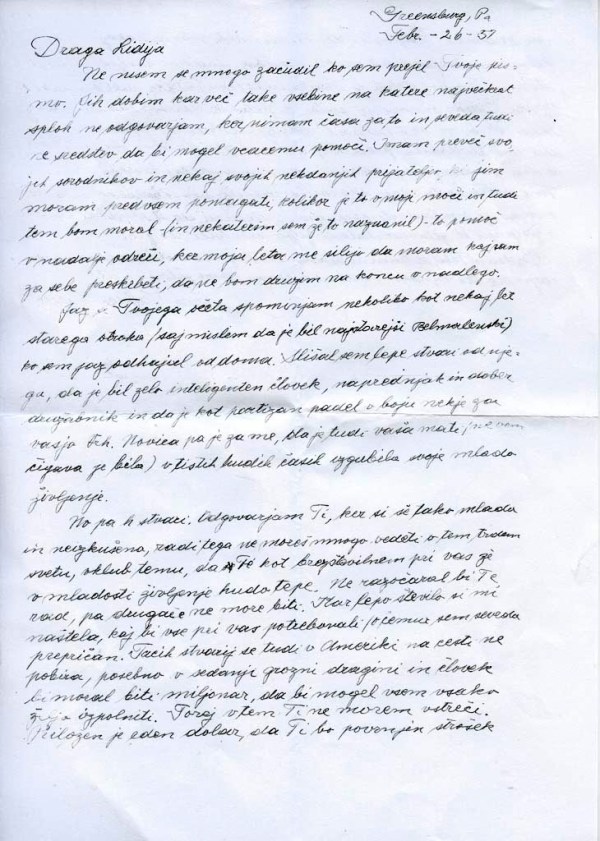 Greensburg, Pa
Febr. - 26 - 51
Draga Lidija
Ne nisem se mnogo začudil ko sem prejel Tvoje pis-
mo. Jih dobim kar več take vsebine na katere največkrat
sploh ne odgovarjam, ker nimam časa za to in seveda tudi
ne sredstev da bi mogel vsacemu pomoči. Imam preveč svo-
jih sorodnikov in nekaj svojih nekdanjih prijateljev, jim
moram pred vsem pomagati, kolikor je to v moji moči in tudi
tem bom moral (in nekaterim sem že to naznanil) - to pomoč
v nadalje odreči, ker moja leta me silijo da moram kaj sam
za sebe preskrbeti, da ne bom drugim na koncu v nadlego.
Jaz se Tvojega očeta spominjam nekoliko kot nekaj let
starega otroka (saj mislem da je bil najstarejši)
ko sem jaz odhajal od doma. Slišal sem lepe stvari od nje-
ga, da je bil zelo inteligenten človek, naprednjak in dober
in da je kot partizan padel v boju nekje za
vasjo. Novica pa je za me, da je tudi vaša mati, (ne vem
čigava je bila) v tistih hudih časih izgubila svoje mlado
življenje.
No pa k stvari. Odgovarjam Ti, ker si še tako mlada
in neizkušena, radi tega ne moreš mnogo vedeti o tem trdem
svetu, vklub temu, da Te kot pri vas že
v mladosti življenje hudo tepe. Ne razočaral bi Te
rad, pa drugače ne more biti. Kar lepo število si mi
naštela, kaj bi vse pri vas potrebovali, o čemur sem seveda
prepričan. Tacih stvarij se tudi v Ameriki na cesti ne
pobira, posebno v sedanji grozni draginji in človek
bi moral biti miljonar, da bi mogel vsem vsako
željo izpolniti. Torej v tem Ti ne morem vstreči.
Priložen je eden dolar, da Ti bo povrnjen strošek